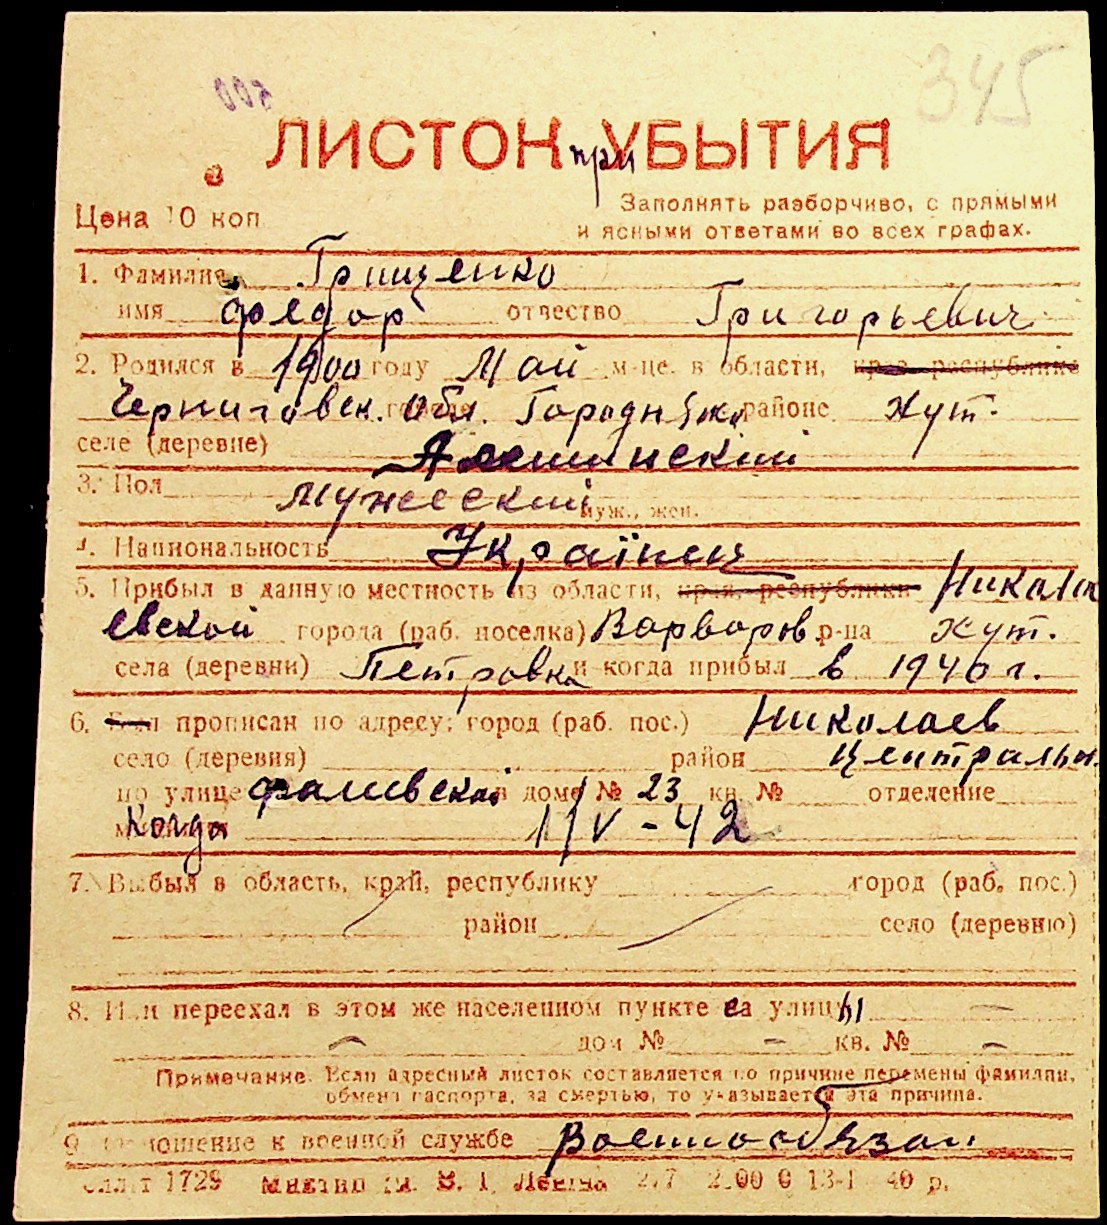 345
ЛИСТОК при УБЫТИЯ
Цена 10 коп.
Заполнять разборчиво, с прямыми
и ясными ответами во всех графах.
1. Фамилия Грищенко
имя Федор отчество Григорьевич
2. Родился в 1900 году Май м-це. в области, края, республике
Черниговск. обл. города районе Хут.
селе (деревне)
3. Пол Мужеский муж., жен.
4. Национальность Українец
5. Прибыл в данную местность из области, края, республики Никола
евской города (раб. поселка) Варваров. р-на хут.
села (деревни) Петровка и когда прибыл в 1940 г.
6. Был прописан по адресу: город (раб. пос.) Николаев
село (деревня) район Центральн.
по улице Фалиевской в доме № 23 кв. № отделение
Когда 1/V-42
7. Выбыл в область, край, республику город (раб. пос.)
район село (деревню)
8. Или переехал в этом же населенном пункте на улицы —
— дом № — кв. № —
Примечание. Если адресный листок составляется по причине перемены фамилии,
обмена паспорта, за смертью, то указывается эта причина.
9. Отношение к военной службе Военнообязан
1729 им. В. И. Ленина 40 р.